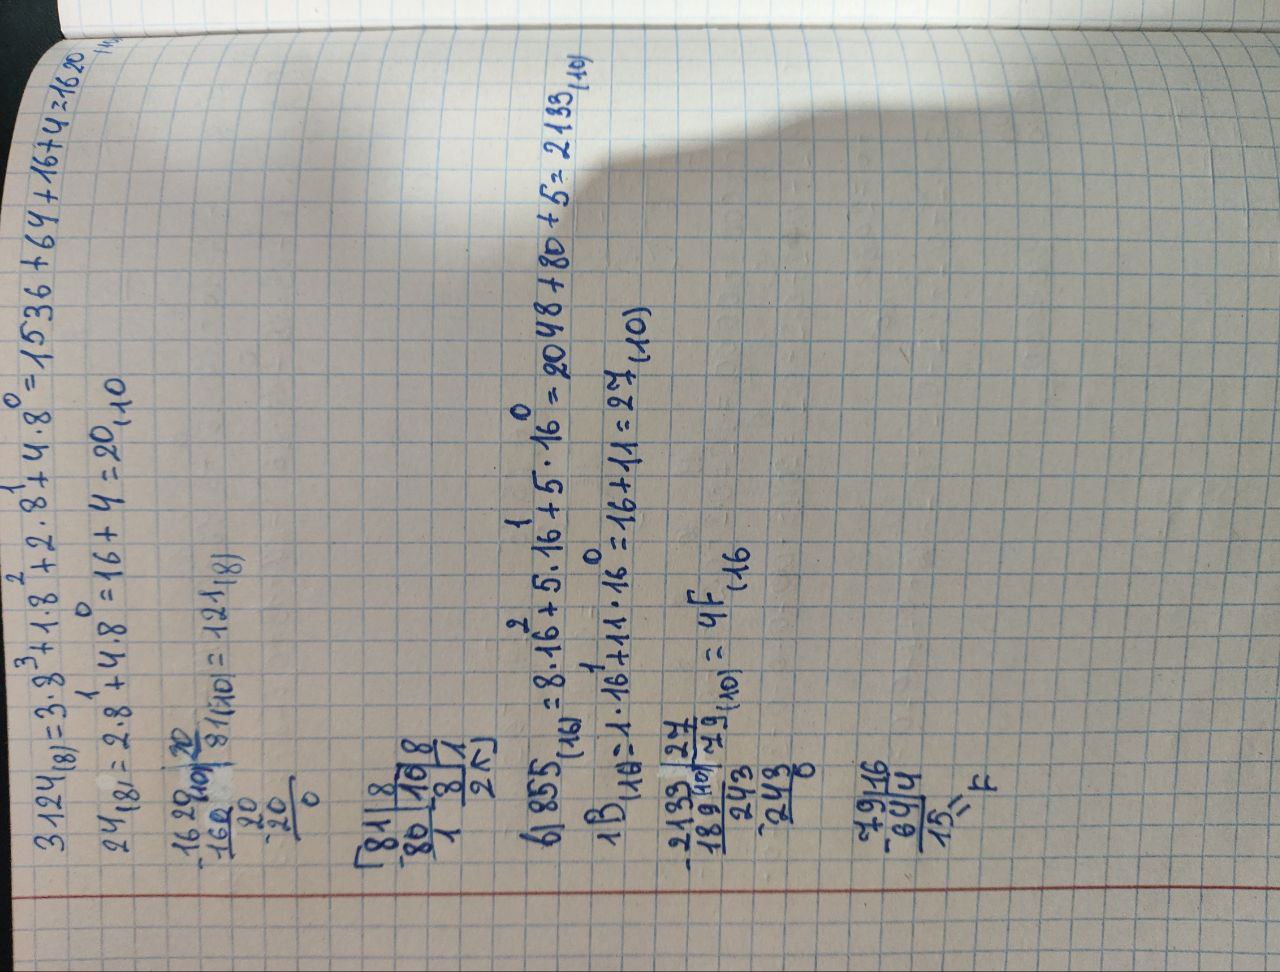 3124(8)=3·8³+1·8²+2·8¹+4·8⁰=1536+64+16+4=1620(10)
24(8=2·8¹+4·8⁰=16+4=20(10
-1620(10)|20
160|81(10)=121(8)
-20
20
0
81|8
-80|10|8
1 8|1
2
в)855(16)=8·16²+5·16¹+5·16⁰=2048+80+5=2133(10)
1B(16)=1·16¹+11·16⁰=16+11=27(10)
-2133(10)|27
189|79(10)=4F(16
243
-243
0
-79|16
64|4
15
=
F